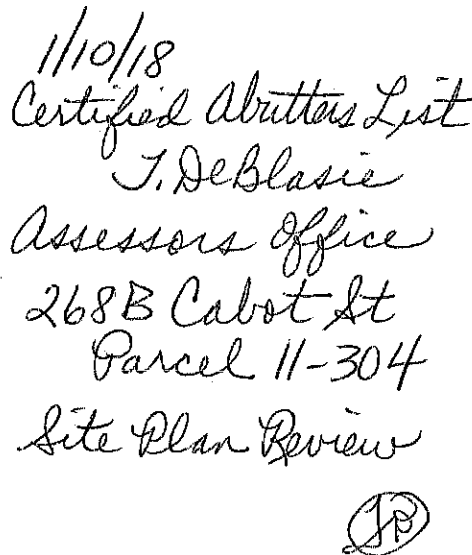 1/10/18
Certified Abutters List
J. DeBlasie
Assessors Office
268B Cabot St
Parcel 11-304
Site Plan Review